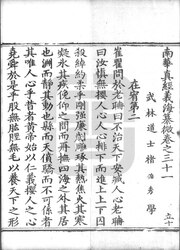 南華真經義海纂微卷之三十一
武林道士褚伯秀學
在宥第二
崔瞿問於老聃曰不治天下安臧人心老聃
曰汝慎無攖人心人心排下而進上上下囚
殺綽約柔乎剛強廉劌雕琢其熱焦火其寒
凝冰其疾俛仰之間而再撫四海之外其居
也淵而靜其動也縣而天僨驕而不可係者
其唯人心乎昔者黃帝始以仁義攖人之心
堯舜於是乎股無胈脛無毛以養天下之形